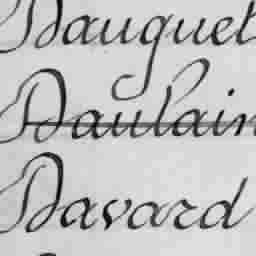 Dauguet
Daulain
Davard